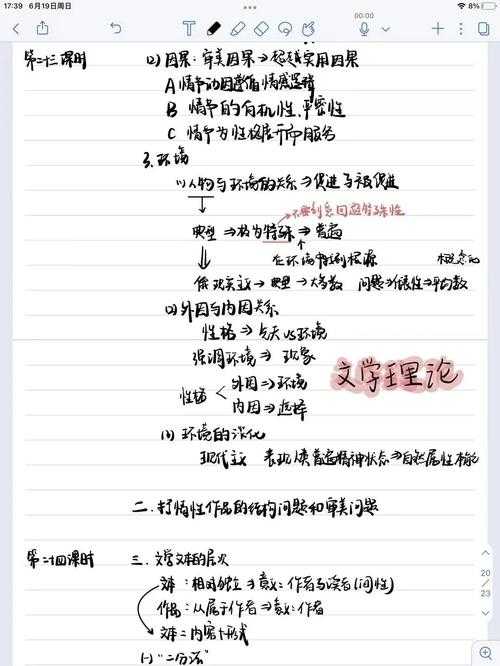 17:39 6月19日周日
8%
00:00
第二十三课时 (2) 因果:审美因果⇒超越实用因果
A 情节动因遵循情感逻辑
B 情节的有机性,严密性
C 情节为性格展开而服务
3. 环境
(1) 人物与环境的关系⇒促进与被促进
不要刻意回避特殊性
典型→极为特殊⇒普遍
在环境中找到根源
概念化
现实主义→典型→大多数 问题⇒ ⇒平均数
(2) 外因与内因关系
性格⇒ vs环境
强调环境⇒现象
文学理论
性格 外因⇒环境
内因⇒选择
(3) 环境的深化
现代主义 表现人类普遍精神状态⇒自然属性本能
二. 抒情性作品的结构问题和审美问题
第二十四课时 三. 文学文本的层次
文本:相对独立⇒意义:作者与读者(间性)
作品:从属于作者⇒意义:作者
文本=内容+形式
(1) "二分法"
20
23